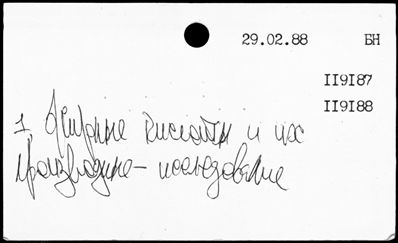 29.02.88 БН
II9I87
II9I88
1. Жирные кислоты и их
производные – исследование